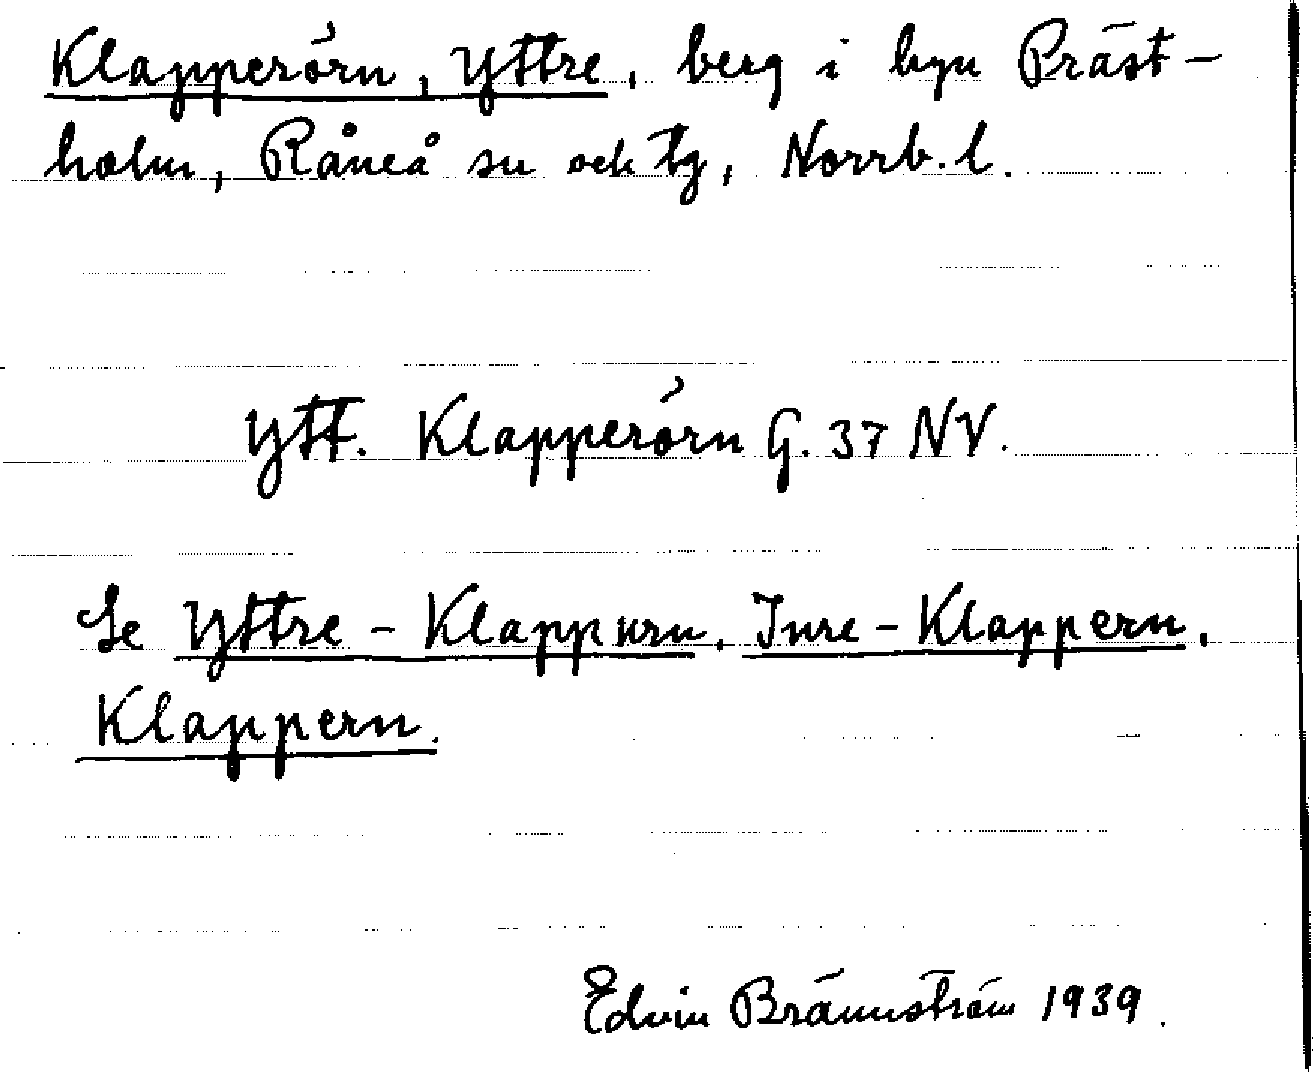 Klapperörn, Yttre, berg i byn Präst-
holm, Råneå sn och tg, Norrb. l.
Ytt. Klapperörn G. 37 NV.
Se Yttre-Klappurn. Inre-Klappern.
Klappern.
Edvin Brännström 1939.